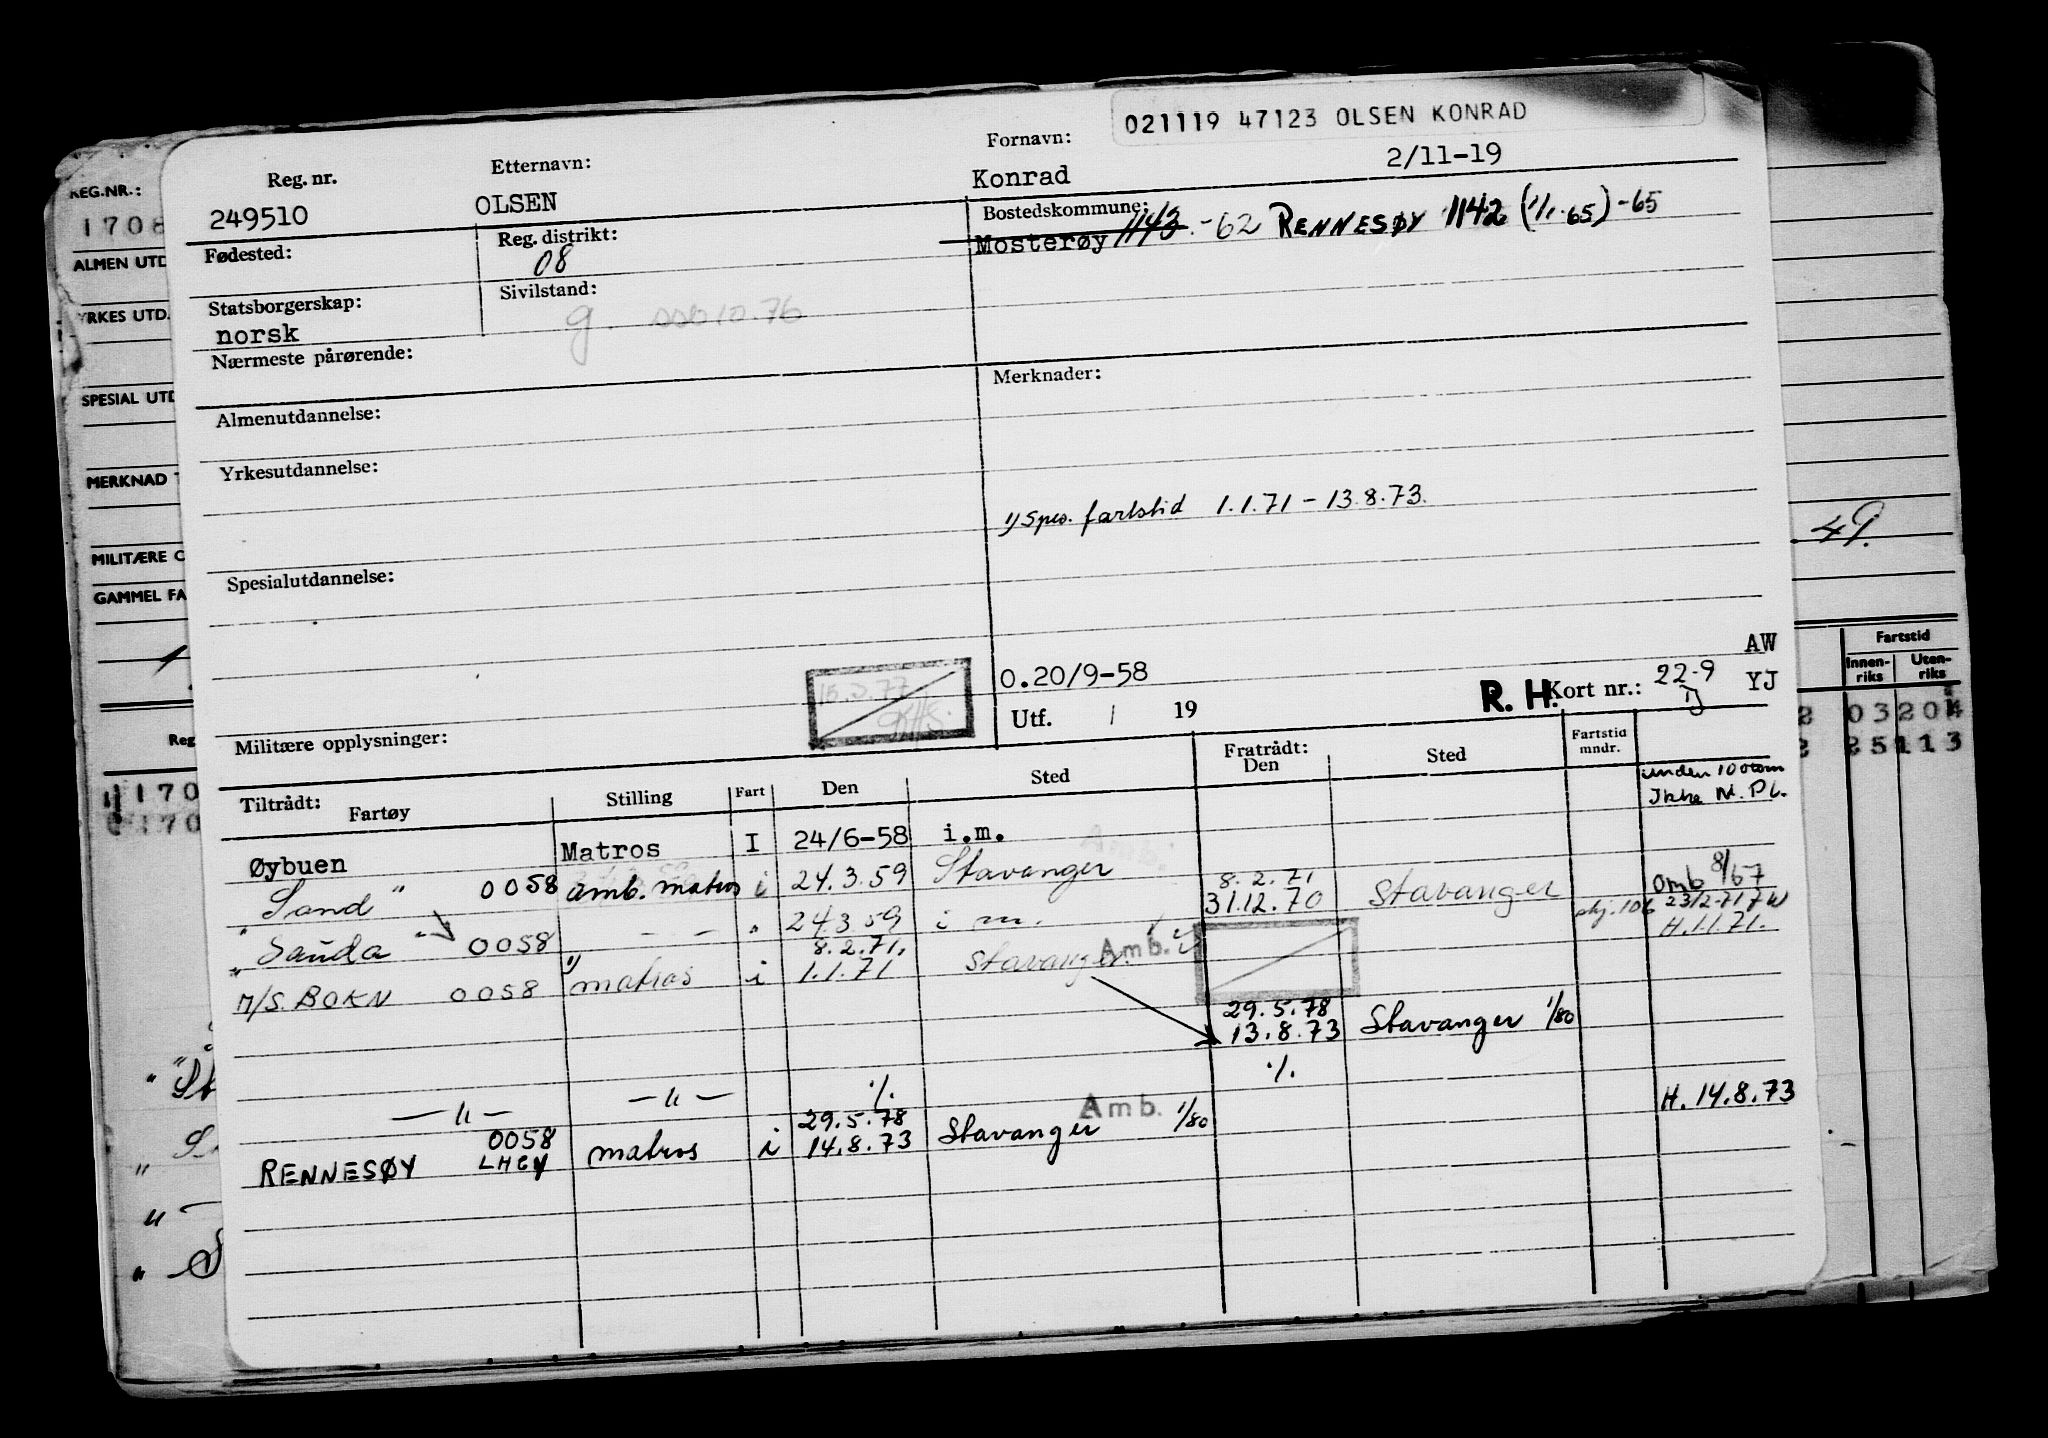 021119 47123 OLSEN KONRAD
Reg. nr. Etternavn: Fornavn:
249510 OLSEN Konrad 2/11-19
Fødested: Reg. distrikt: Bostedskommune:
08 Mosterøy 1143 -62 RENNESØY 1142 (1/1-65) -65
Statsborgerskap: Sivilstand:
norsk g.
Nærmeste pårørende: Merknader:
Almenutdannelse:
Yrkesutdannelse:
1) Spes. fartstid 1.1.71 - 13.8.73.
Spesialutdannelse:
AW
O.20/9-58
R. H. Kort nr.: 22-9 YJ
Utf. / 19
Militære opplysninger:
Tiltrådt: Fartøy Stilling Fart Den Sted Fratrådt: Den Sted Fartstid mndr.
under 100 tonn
Ikke M. Pl.
Øybuen Matros I 24/6-58 i.m.
"Sand" 0058 amb. matros i 24.3.59 Stavanger 8.2.71 31.12.70 Stavanger Omb 8/67
"Sauda" 0058 - - " 24.3.59 i m. H. 1.1.71.
8.2.71.
M/S. BOKN 0058 1) matros i 1.1.71 Stavanger Amb.
29.5.78
13.8.73 Stavanger 1/80
./.
— " — — " — ./. H. 14.8.73
0058 29.5.78 Amb.
RENNESØY LHCY matros i 14.8.73 Stavanger 1/80
REG.NR.:
1708
ALMEN UTD
YRKES UTD.
SPESIAL UTD
MERKNAD T
MILITÆRE O
GAMMEL FA
49.
Fartstid
Innen-riks Uten-riks
Reg
170
170
2 03204
2 25113